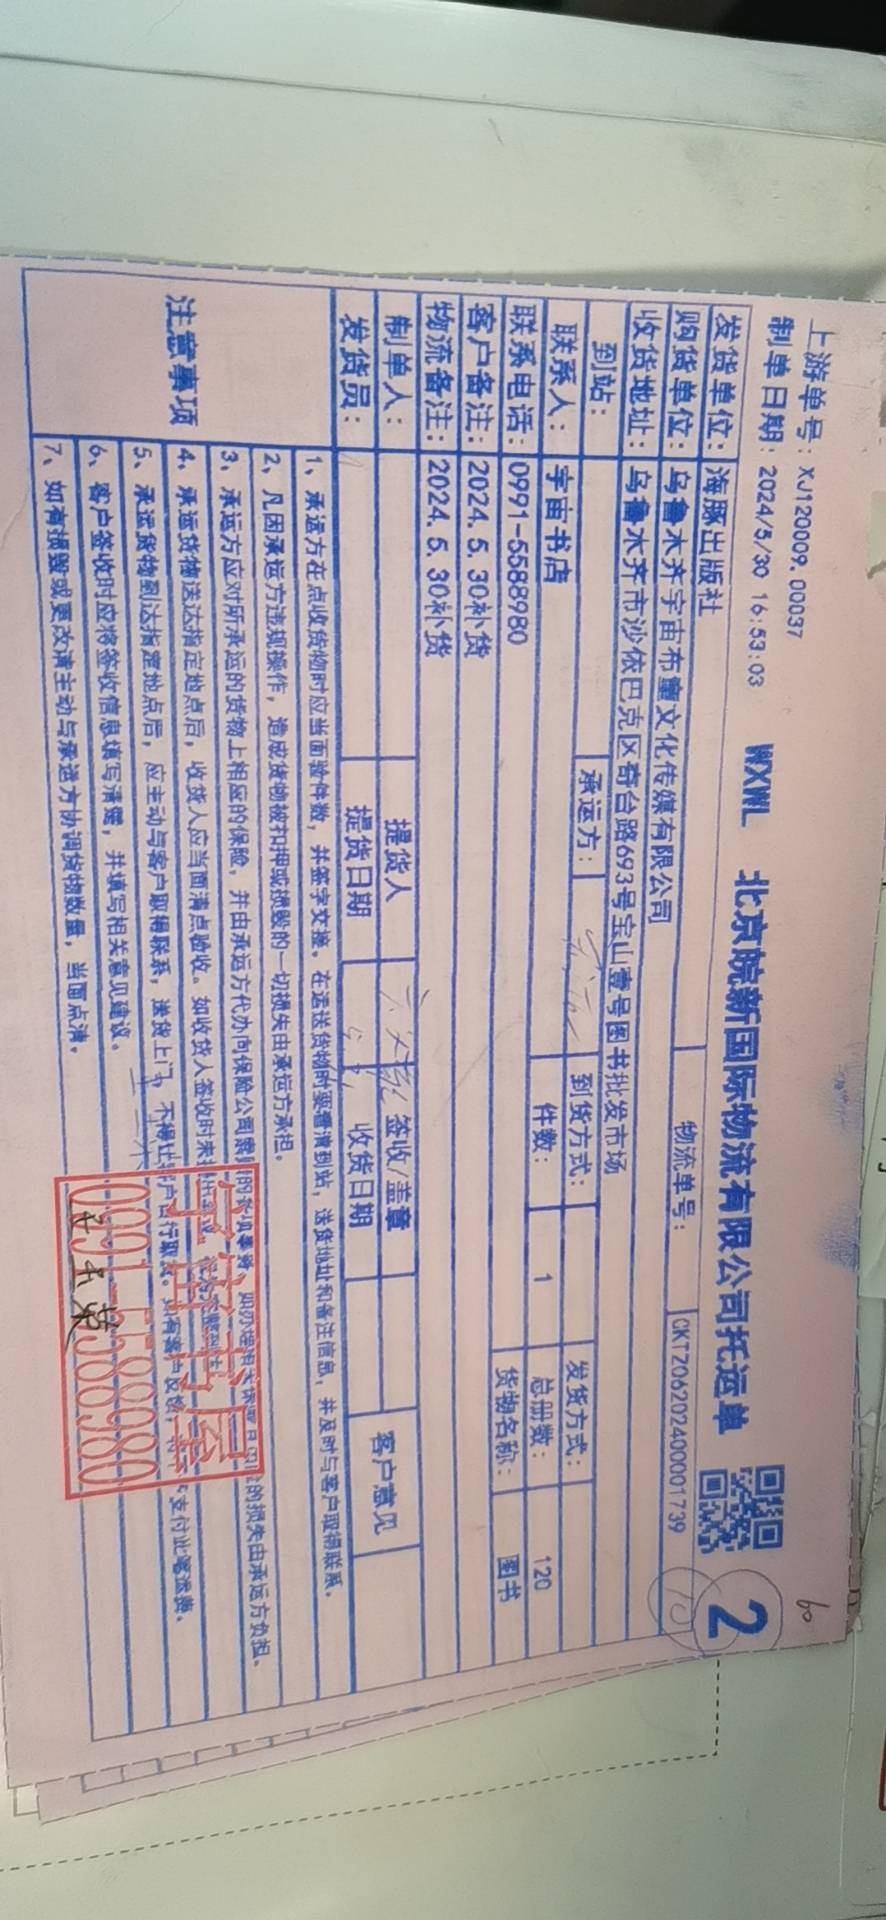 上游单号：XJ120009.00037
制单日期：2024/5/30 16:53:03
WXWL 北京皖新国际物流有限公司托运单
2
60
发货单位：海豚出版社
物流单号：CKTZ06202400001739
购货单位：乌鲁木齐宇宙布童文化传媒有限公司
收货地址：乌鲁木齐市沙依巴克区奇台路693号宝山壹号图书批发市场
到站： 承运方： 到货方式： 发货方式：
联系人：宇宙书店 件数：1 总册数：120
联系电话：0991-5588980 货物名称：图书
客户备注：2024.5.30补货
物流备注：2024.5.30补货
制单人： 提货人 签收/盖章 客户意见
发货员： 提货日期 收货日期
注意事项
1、承运方在点收货物时应当面验件数，并签字交接。在运送货物时要看清到站，送货地址和备注信息，并及时与客户取得联系。
2、凡因承运方违规操作，造成货物被扣押或损毁的一切损失由承运方承担。
3、承运方应对所承运的货物上相应的保险，并由承运方代办向保险公司索 的损失由承运方负担。
4、承运货物送达指定地点后，收货人应当面清点验收。如收货人签收时未
5、承运货物到达指定地点后，应主动与客户取得联系，送货上门，不得让客户自行取货。如有客户反馈， 支付此笔运费。
6、客户签收时应将签收信息填写清楚，并填写相关意见建议。
7、如有损毁或更改请主动与承运方协调货物数量，当面点清。
宇宙书店
0991-5588980